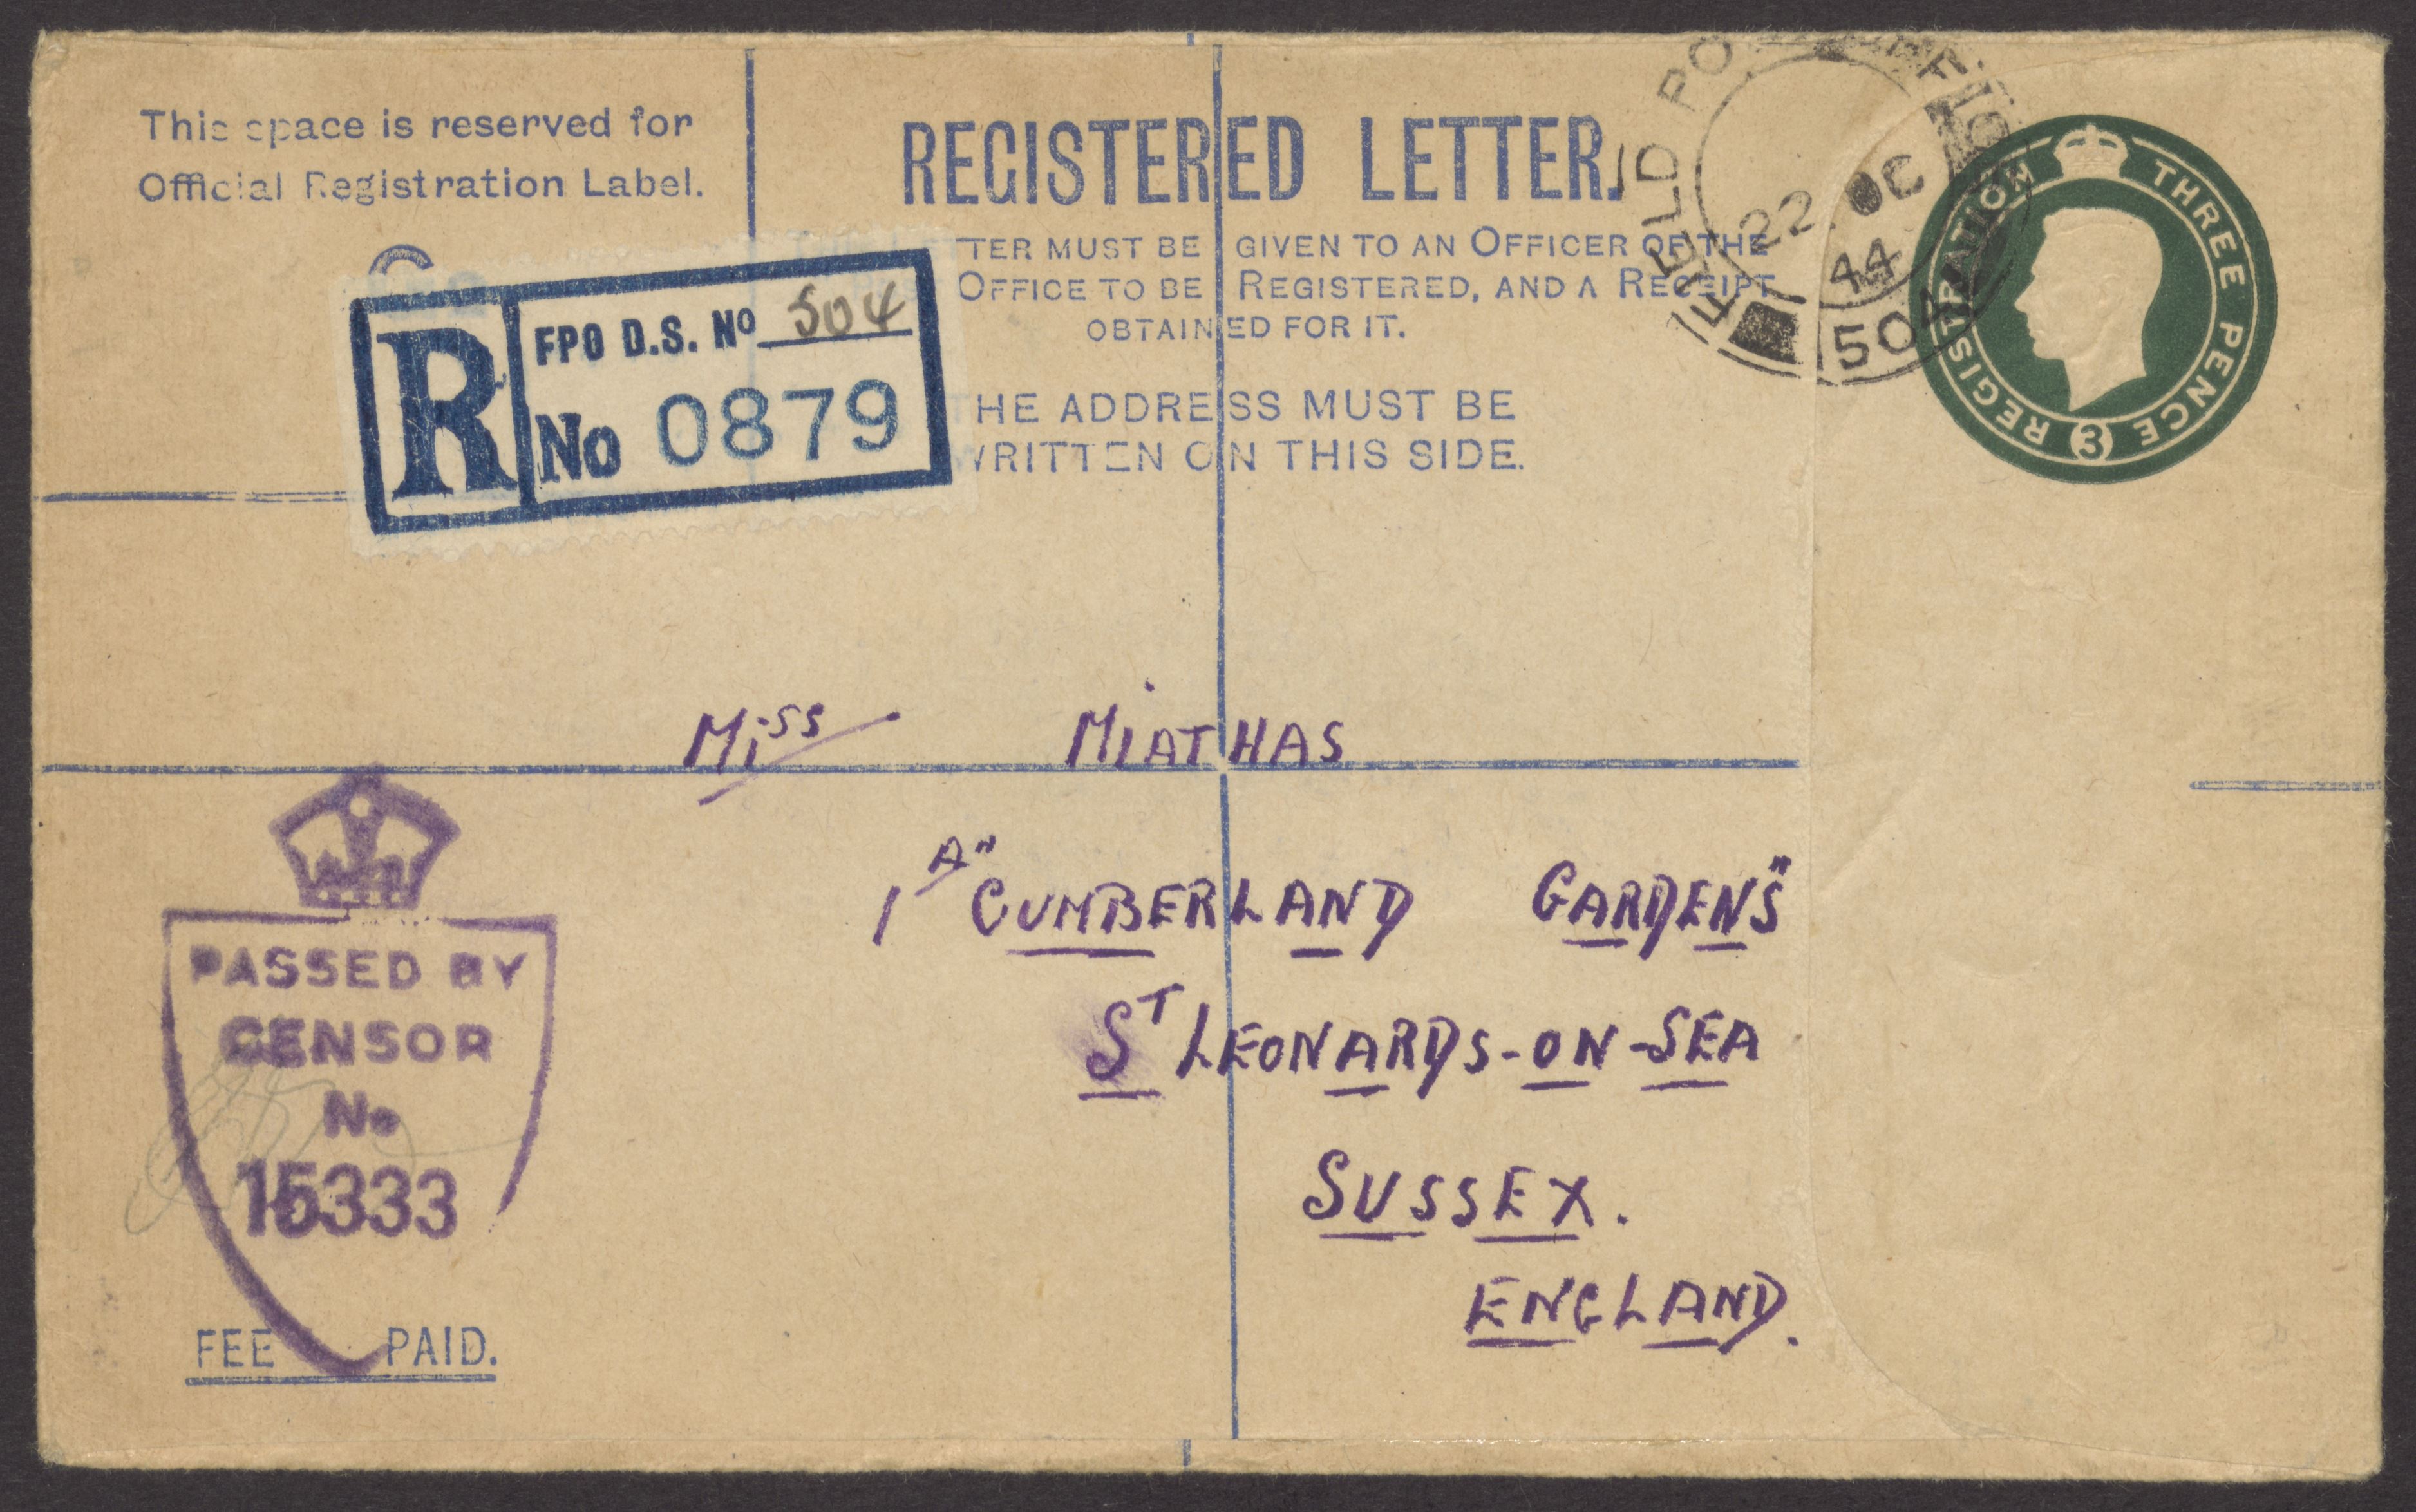 This space is reserved for
Official Registration Label.
REGISTERED LETTER.
TER MUST BE GIVEN TO AN OFFICER OF THE
OFFICE TO BE REGISTERED, AND A RECEIPT
OBTAINED FOR IT.
HE ADDRESS MUST BE
WRITTEN ON THIS SIDE.
R
FPO D.S. No 504
No 0879
FIELD POST OFFICE
22 OC
44
504
REGISTRATION THREE PENCE
3
Miss MIATHAS
1A "CUMBERLAND GARDENS"
ST LEONARDS-ON-SEA
SUSSEX.
ENGLAND.
PASSED BY
CENSOR
No
15333
FEE PAID.